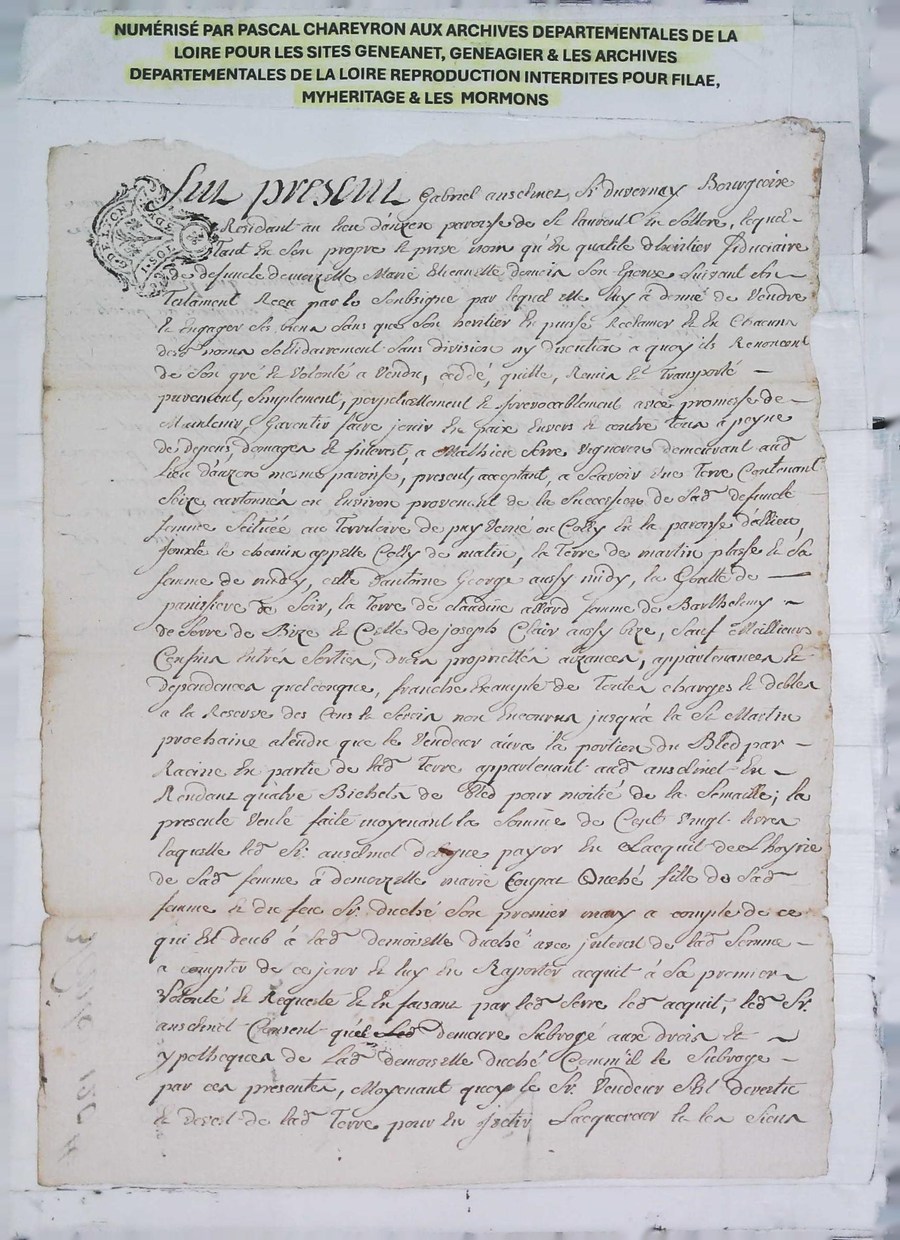 NUMÉRISÉ PAR PASCAL CHAREYRON AUX ARCHIVES DEPARTEMENTALES DE LA
LOIRE POUR LES SITES GENEANET, GENEAGIER & LES ARCHIVES
DEPARTEMENTALES DE LA LOIRE REPRODUCTION INTERDITES POUR FILAE,
MYHERITAGE & LES MORMONS
G. DE LYON
Fut present Gabriel anselmet Sr. Duvernay Bourgeoire
Residant au lieu d'anzon paroisse de St laurent En Sollore, lequel
Tant En Son propre & privé nom qu'En qualité d'heritier fiduciaire
de defuncte demoizelle Marie Etiennette demoin Son Epouse Suivant Son
Testament Receu par le Soubsigné par lequel elle luy à donné de Vendre
Et Engager Ses biens Sans que Son heritier En puisse Reclamer Et En Chacuns
desd. noms Sollidairement Sans division ny discution a quoy ils Renoncent
de Son gré Et Volonté a Vendu, ceddé, quitté, Remis Et Transporté
purement, Simplement, perpetuellement Et irrevocablement avec promesse de
Maintenir, Garentir faire jouir En paix Envers Et contre tous à peyne
de depens, domages Et interest, a Mathieu Serre Vigneron demeurant aud.
lieu d'anzon mesme paroisse, present, acceptant, a Scavoir Une Terre Contenant
Seize cartonnés ou Environ provenant de la Succession de Sad. defuncte
femme Scituée au Territoire de puy Verne ou Colly En la paroisse d'allieu,
jouxte le chemin appelle Colly de matin, la Terre de martin plasse Et Sa
femme de midy, celle d'antoine George aussy midy, la Goutte de
panissiere de Soir, la Terre de claudine allard femme de Barthelemy
de Bize Et Celle de joseph Clair aussy bize, Sauf Meillieurs
Confins Entrés Sorties, droits proprietés aizances, appartenances Et
dependences quelconque, franche Exampte de Toutes charges Et debtes
a la Reserve des Cens Et Servis non Encourus jusqu'à la St Martin
prochaine atendu que le Vendeur aura la portion du Bled par
Racine En partie de lad. Terre appartenant aud. anselmet En
Rendant quatre Bichets de Bled pour moitié de la Semaille; la
presente Vente faite moyenant la Somme de Cent Vingt livres
laquelle led. Sr. anselmet delegue payer En Lacquit de Lhoyrie
de Sad. femme à demoizelle marie Coupat Duché fille de Sad.
femme Et du feu Sr. duché Son premier mary a compte de ce
qui Est deub à lad. demoiselle duché avec jnterest de lad. Somme
a compter de ce jour Et luy En Raporter acquit à Sa premier
Volonté Et Requeste Et En faisant par led. Serre led. acquit, led. Sr.
anselmet Consent qu'il demeure Subrogé aux droits Et
ypotheques de Lad. demoiselle duché Comm'il le Subroge
par ces presentes, Moyenant quoy le Sr. Vendeur S'est devertu
Et devest de lad. Terre pour En jnvestir Lacquereur Et les Siens